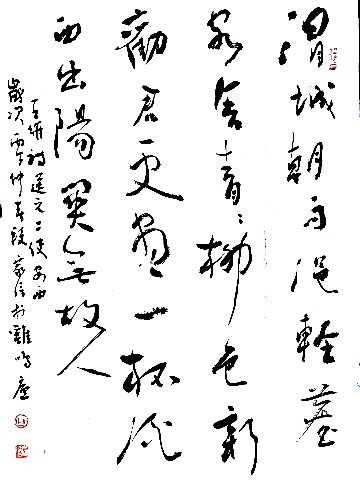 渭城朝雨浥輕塵
客舍青々柳色新
勸君更盡一杯酒
西出陽關無故人
王維詩送元二使安西
歲次仲春家信於雞鳴廬